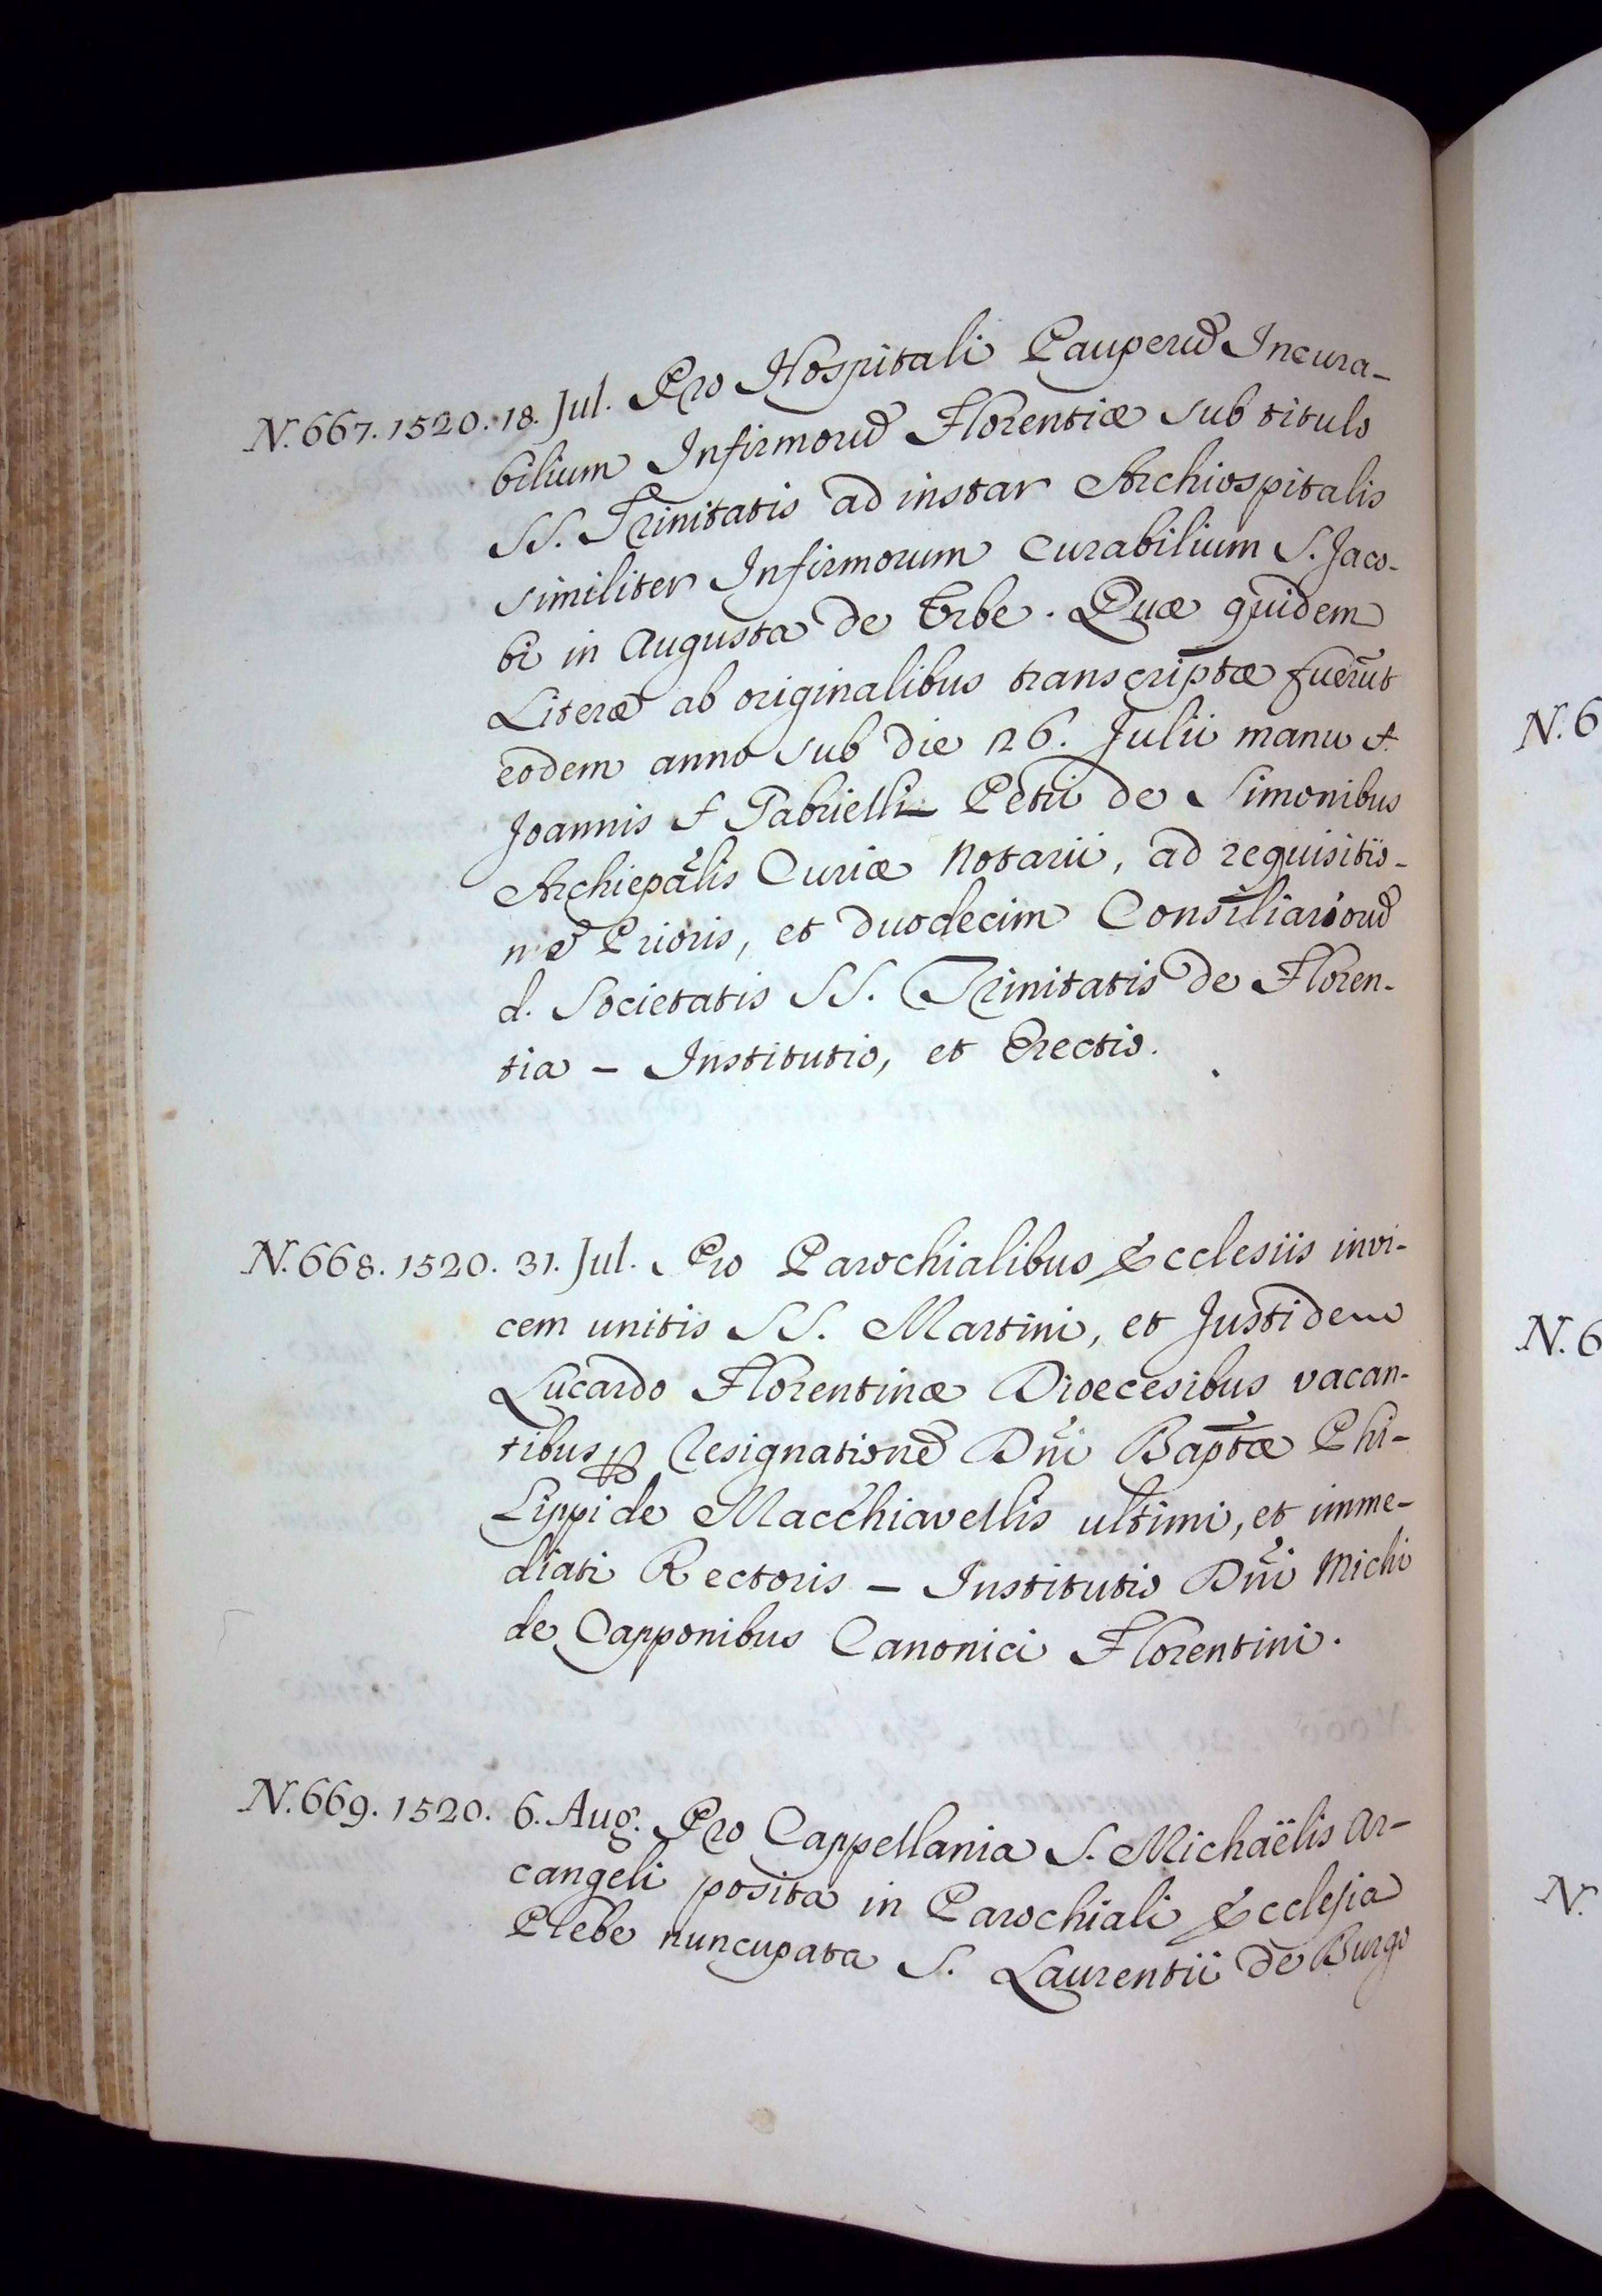 N. 667. 1520. 18. Jul. Pro Hospitali Pauperū Incura-
bilium Infirmorū Florentiæ sub titulo
SS. Trinitatis ad instar Archiospitalis
similiter Infirmorum Curabilium S. Jaco-
bi in Augusta de Urbe. Quæ quidem
Literæ ab originalibus transcriptæ fuerūt
eodem anno sub die 26. Julii manu
Joannis f Gabrielli Petri de Simonibus
Archiepãlis Curiæ Notarii, ad requisitio-
nē Prioris, et duodecim Consiliariorū
d. Societatis SS. Trinitatis de Floren-
tia – Institutio, et Erectio.
N. 668. 1520. 31. Jul. Pro Parochialibus Ecclesiis invi-
cem unitis SS. Martini, et Justi de
Lucardo Florentinæ Dioecesibus vacan-
tibus ꝑ Resignationē Dñi Baptæ Phi-
lippi de Macchiavellis ultimi, et imme-
diati Rectoris – Institutio Dñi Michi
de Capponibus Canonici Florentini.
N. 669. 1520. 6. Aug. Pro Cappellania S. Michaëlis Ar-
cangeli posita in Parochiali Ecclesia
Plebe nuncupata S. Laurentii de Burgo
N. 6
N. 6
N.